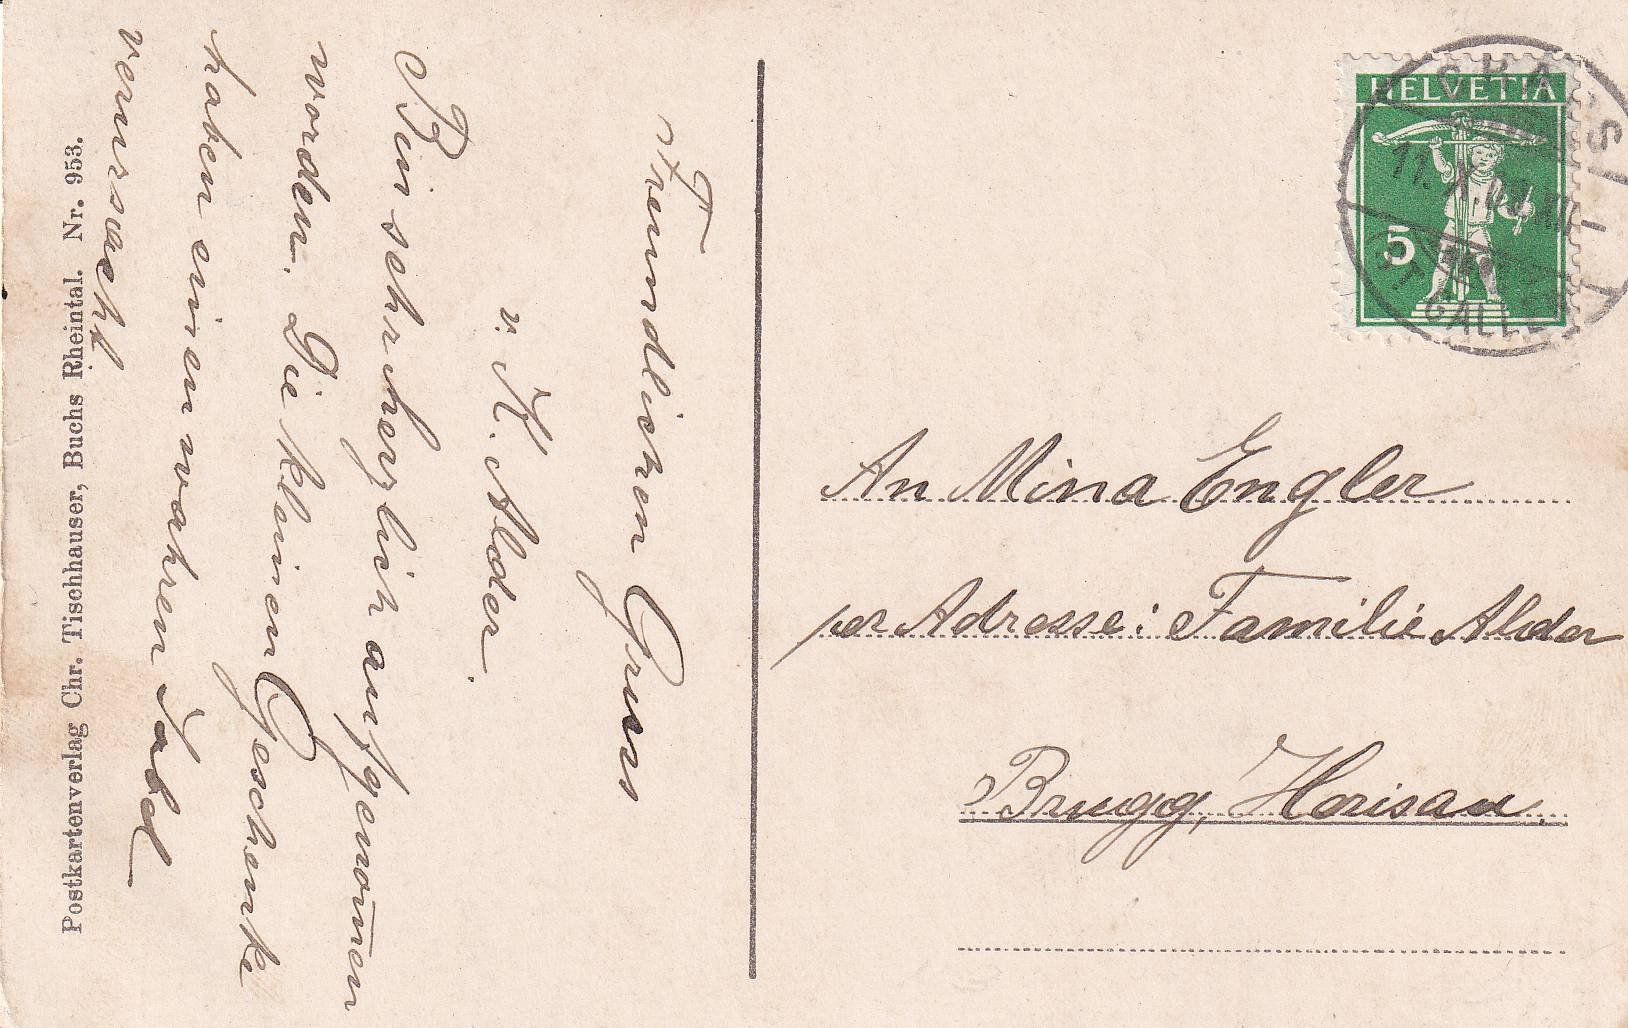 HELVETIA
5
11.X.09
ST. GALLEN
An Mina Engler
per Adresse: Familie Alder
Brugg, Herisau.
Freundlichen Gruss
v. K. Alder.
Bin sehr herzlich aufgenom̄en
worden. Die kleinen Geschenke
haben einen wahren Jubel
verursacht
Postkartenverlag Chr. Tischhauser, Buchs Rheintal. Nr. 953.